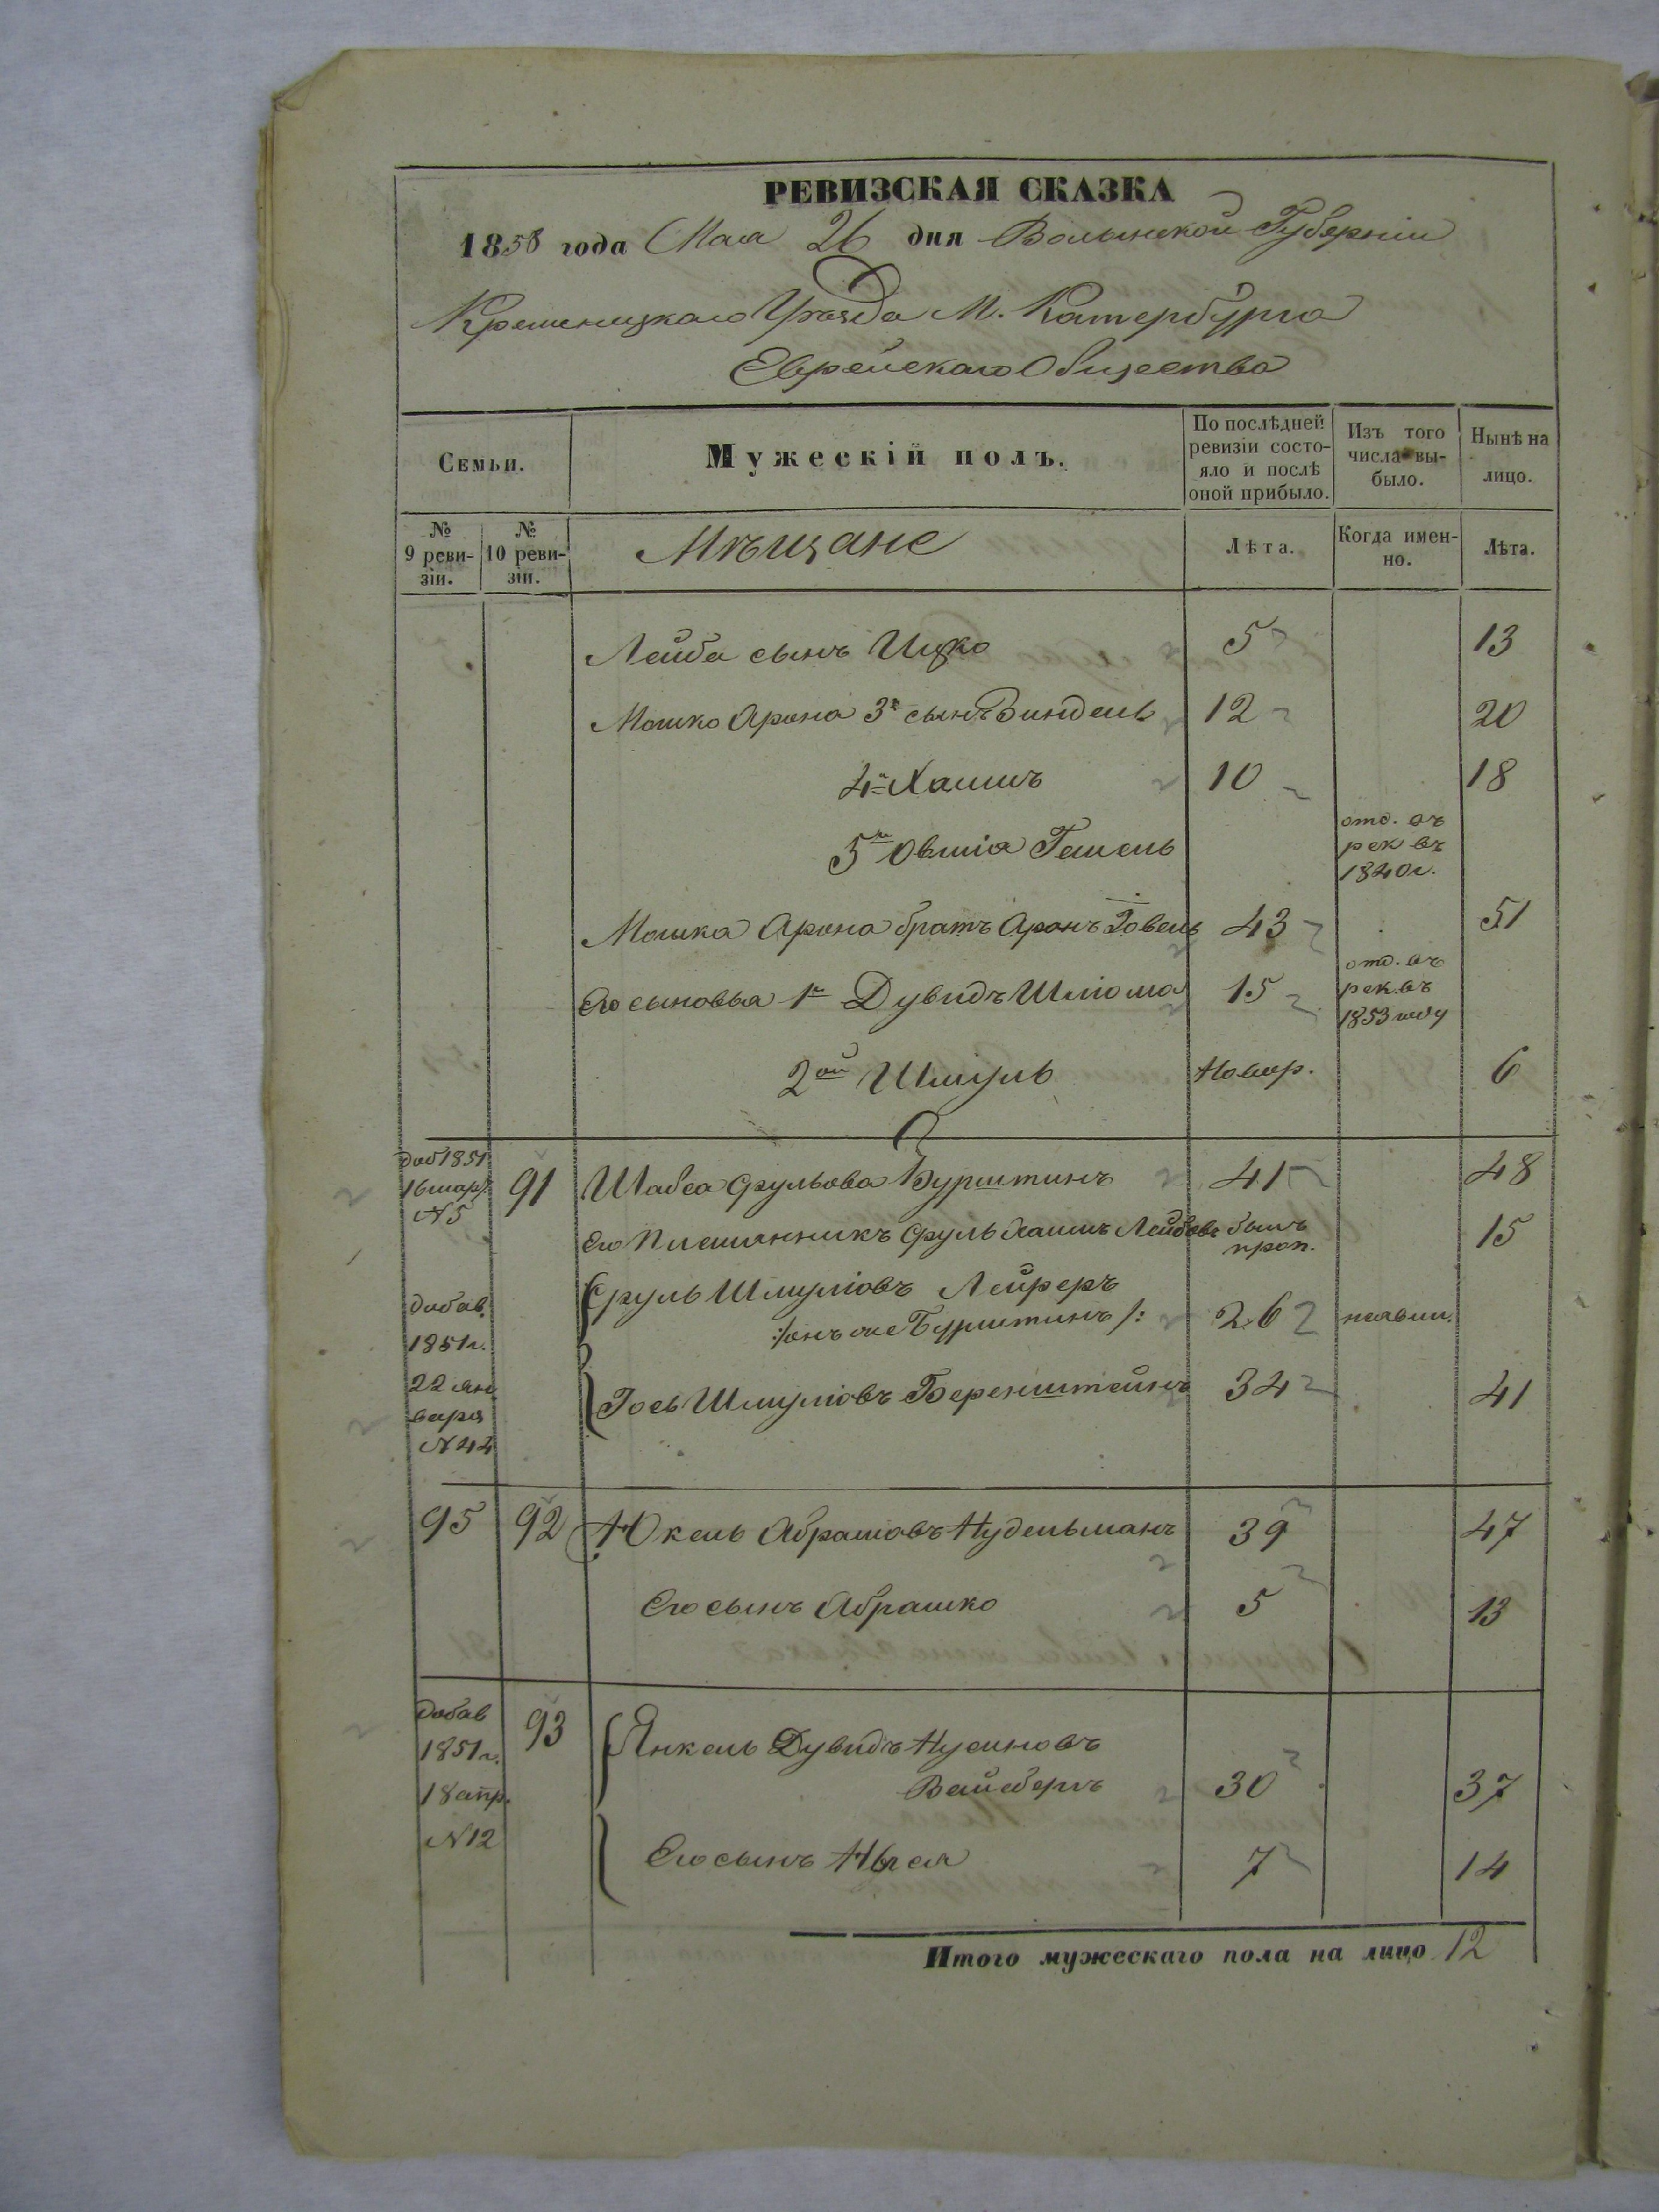 РЕВИЗСКАЯ СКАЗКА
1858 года Мая 26 дня Волынской Губерніи
Кременецкаго Уѣзда М. Катербурга
Еврейскаго Общества
Семьи.
Мужескій полъ.
По послѣдней ревизіи состояло и послѣ оной прибыло.
Изъ того числа выбыло.
Нынѣ на лицо.
№ 9 ревизіи.
№ 10 ревизіи.
Мѣщане
Лѣта.
Когда именно.
Лѣта.
Лейба сынъ Ицко 5 13
Мошко Арона 3й сынъ Зиндель 12 20
4й Хаимъ 10 18
5й Овшія Гешель отд. въ рек въ 1840г.
Мошка Арона братъ Аронъ Іовель 43 51
Его сыновья 1й Дувидъ Шліома 15 отд. въ рек. въ 1853 году
2ой Шмуль Новор. 6
доб 1851 16 мар. N5 91 Шабса Срульова Бурштинъ 41 48
Его племянникъ Сруль Хаимъ Лейбовъ былъ проп. 15
добав. 1851г. 22 января N44
Сруль Шмуліовъ Лейреръ
:/онъ же Бурштинъ/: 26 неявил.
Іось Шмуліовъ Беренштейнъ 34 41
95 92 Юкель Абрамовъ Нудельманъ 39 47
Его сынъ Абрашко 5 13
добав 1851г. 18 апр. N12 93 Янкель Дувидъ Нусиновъ
Вайсберъ 30 37
Его сынъ 7 14
Итого мужескаго пола на лицо 12